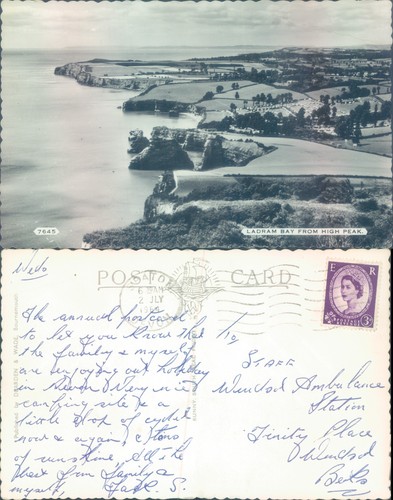 7645
LADRAM BAY FROM HIGH PEAK.
Weds
POST CARD
2 JLY
E R
3D
The annual postcard
to let you know that
the family & myself
are enjoying our holiday
in Devon Very nice
site a
little drop of
now & again, tons
of sunshine All the
best from family &
myself, Jack. S.
To
STAFF
Windsor Ambulance
Station
Trinity Place
Windsor
Berks